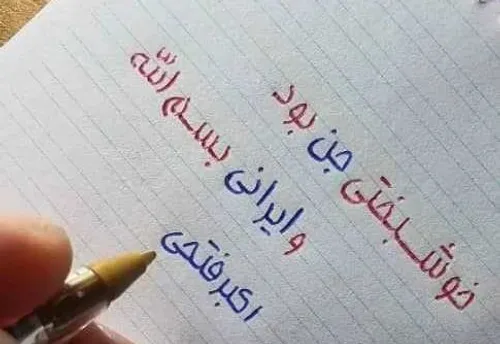 خوشبختی جن بود
و ایرانی بسم الله
اکبر فتحی